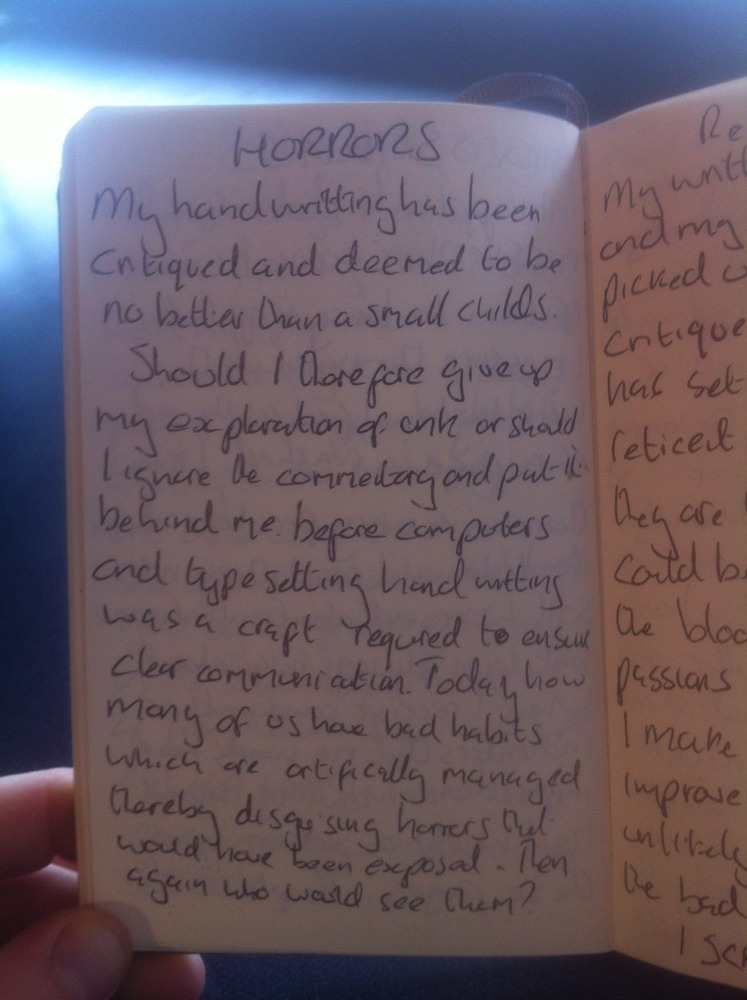 HORRORS
My handwritting has been
critiqued and deemed to be
no better than a small childs.
Should I therefore give up
my exploration of ink or should
I ignore the commentary and put it
behind me. before computers
and typesetting hand writting
was a craft required to ensure
clear communication. Today how
many of us have bad habits
which are artifically managed
thereby disguising horrors that
would have been exposed. Then
again who would see them?
Re
My writt
and my
picked
critique
has set
reticent
they are
could b
the bloo
passions
I make
improve
unlikely
the bad
I scr